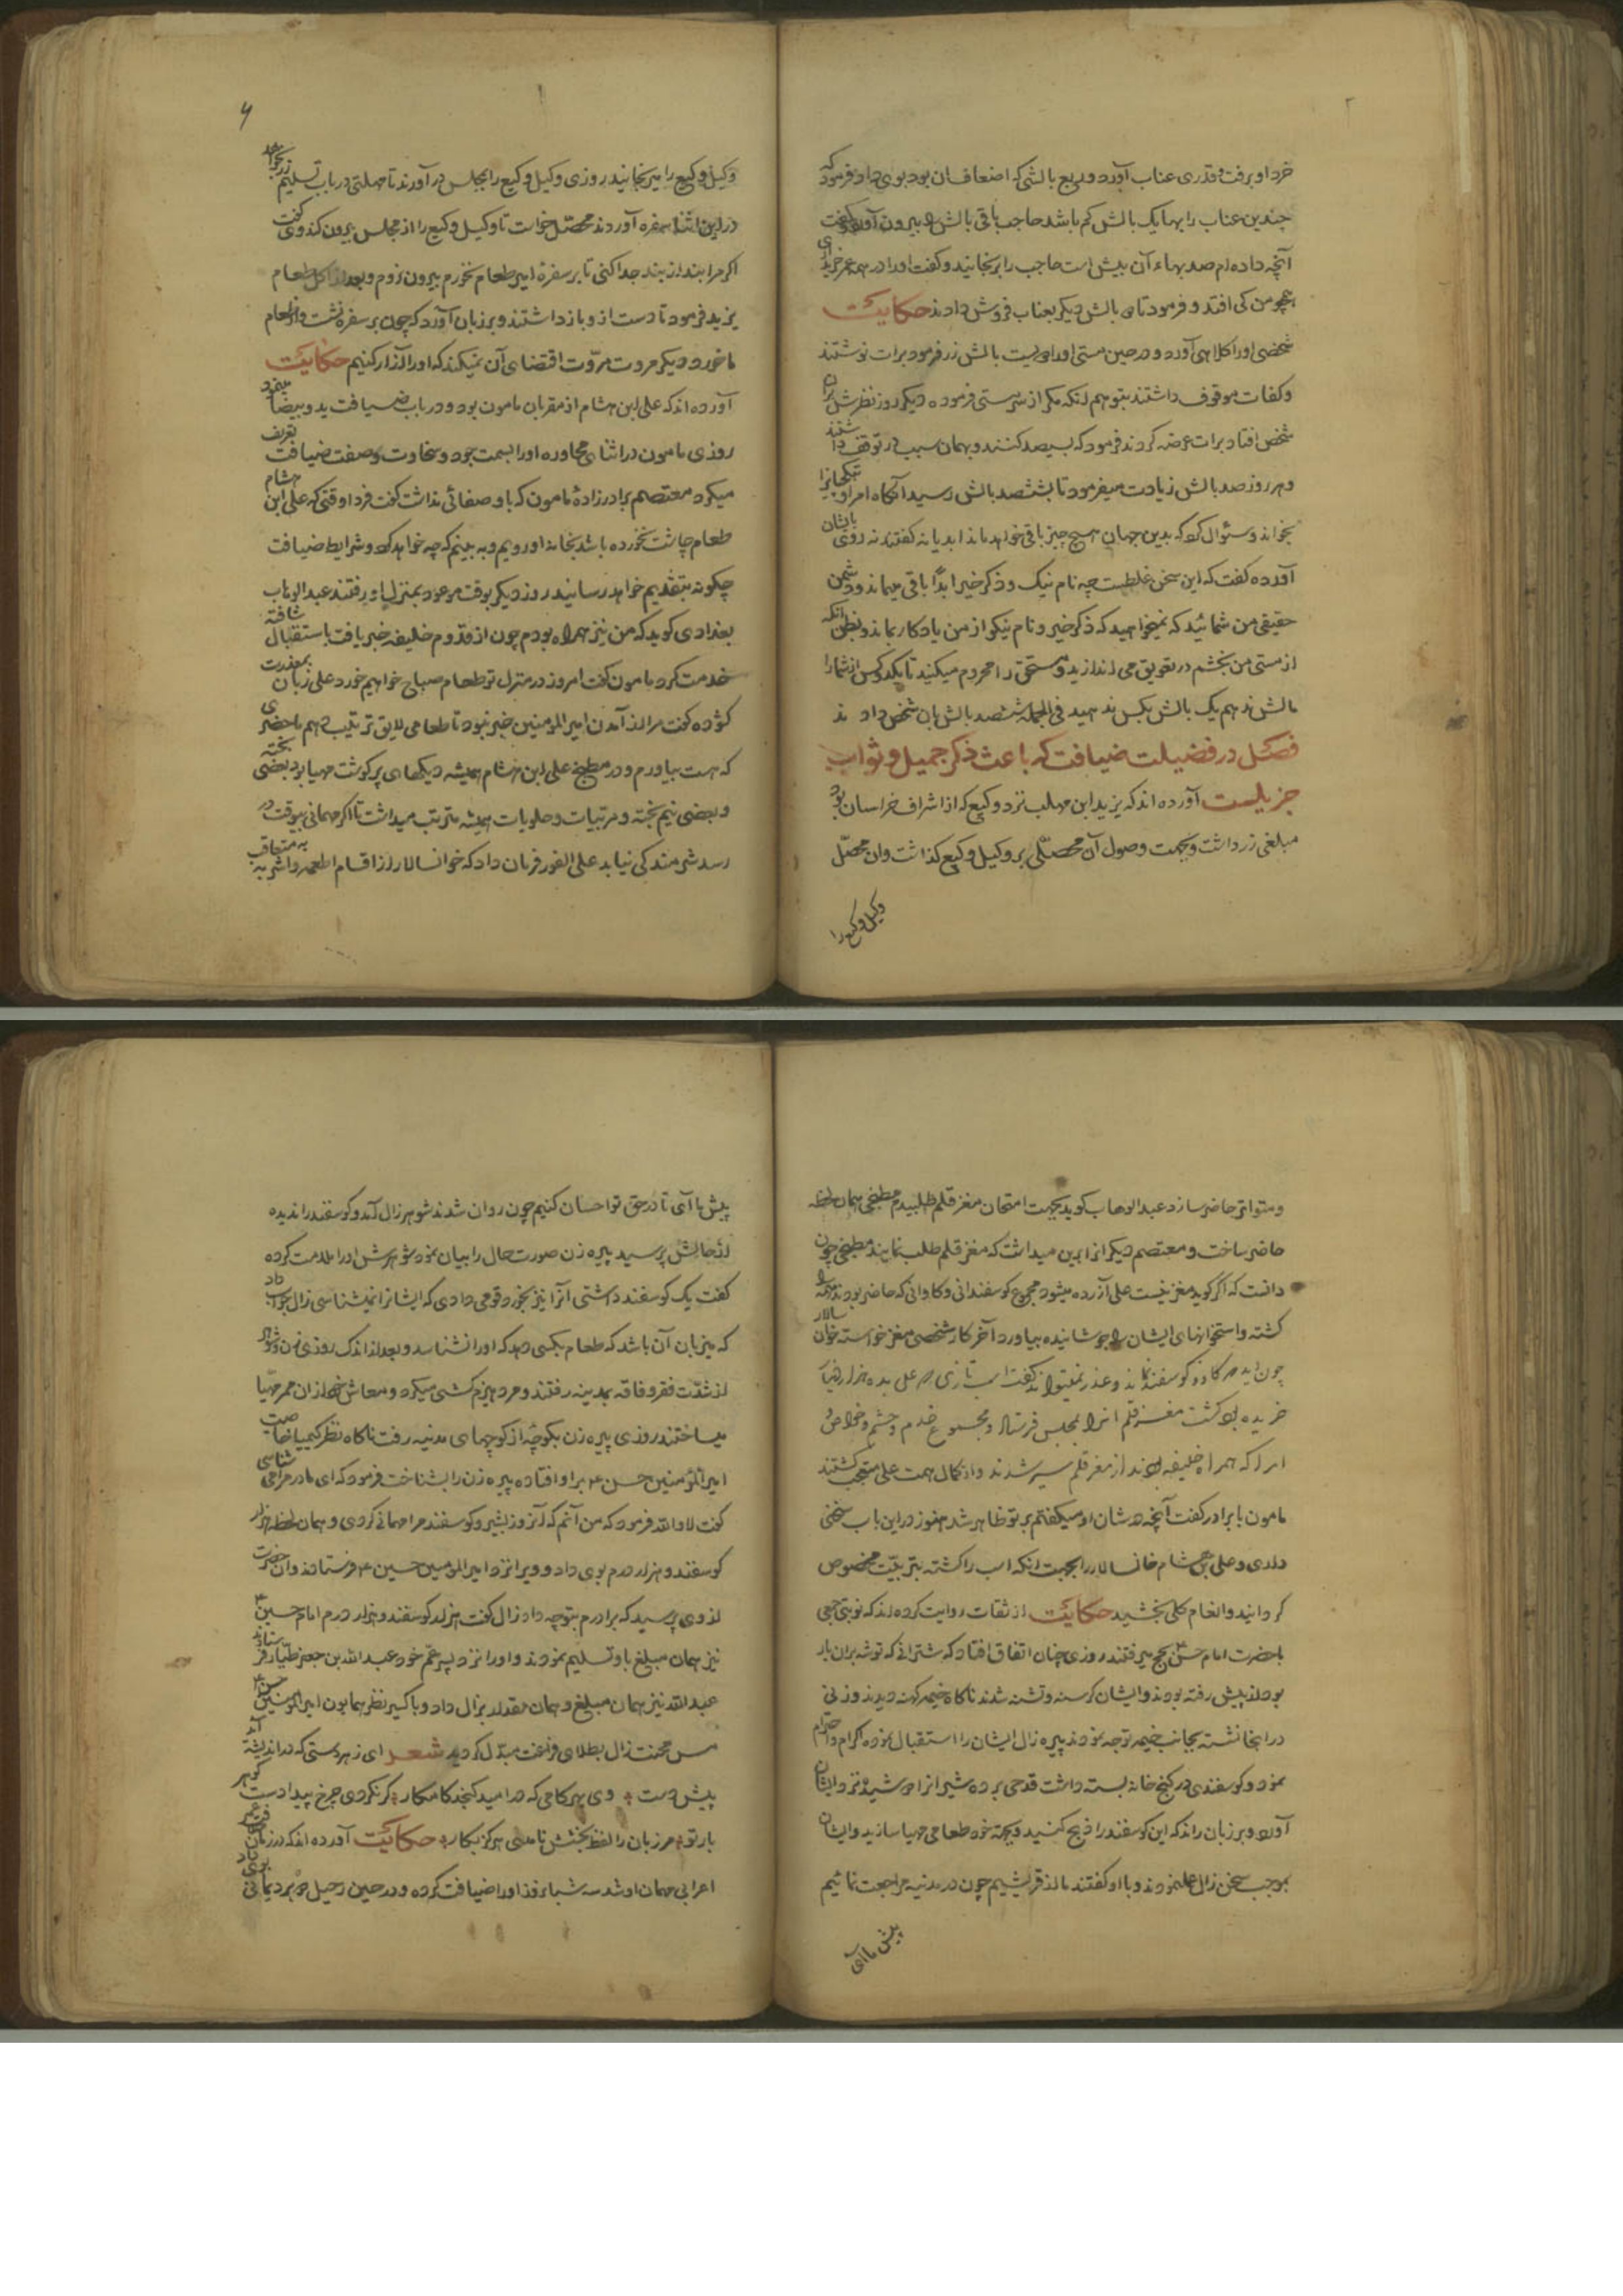 خرد او برفت و قدری عناب آورد و ربع بالشی که اضعاف آن بود بوی داد و فرمود که
چندین عناب را بها یک بالش کم باشد حاجب باقی بالش را بیرون آورد و گفت
آنچه داده‌ام صد بهاء آن بیش است حاجب را برنجانید و گفت او را در همه عمر خریداری
همچو من کی افتد و فرمود تا ده بالش دیگر بعناب فروش دادند حکایت
شخصی او را کلاهی آورد و در حین مستی او را دویست بالش زر فرمود برات نوشتند
و کفات موقوف داشتند بتوهم آنکه مگر از سر مستی فرموده دیگر روز نظرش بران
شخص افتاد برات عرضه کردند فرمود که سیصد کنند و بهمان سبب در توقف داشتند
و هر روز صد بالش زیادت میفرمود تا بششصد بالش رسید آنگاه امرا و بتکچیانرا
بخواند و سئوال کرد که بدین جهان هیچ چیز باقی خواهد ماند ابدا یا نه گفتند نه روی بایشان
آورده گفت که این سخن غلطست چه نام نیک و ذکر خیر ابداً باقی میماند و دشمن
حقیقی من شمائید که نمیخواهید که ذکر خیر و نام نیکو از من یادگار بماند و بظن آنکه
از مستی من بخشم در تعویق می اندازید و مستحق را محروم میکنید تا یکدو کس از شما را
مالش ندهم یک بالش بکس ندهید فی الجمله ششصد بالش بان شخص دادند
فصل در فضیلت ضیافت که باعث ذکر جمیل و ثواب
جزیلست آورده اند که یزید ابن مهلب نزد وکیع که از اشراف خراسان بود
مبلغی زر داشت و بجهت وصول آن محصلی بر وکیل وکیع گذاشت و ان محصل
وکیل وکیع را
۴
وکیل وکیع را میرنجانید روزی وکیل وکیع را بمجلس در آورند تا مهلتی در باب تسلیم زر بخواهد
در این اثنا سفره آوردند محصل خواست تا وکیل وکیع را از مجلس بیرون کند وی گفت
اگر مرا بند از بند جدا کنی تا بر سفرهٔ امیر طعام نخورم بیرون نروم و بعد از اکل طعام
یزید فرمود تا دست از و باز داشتند و بر زبان آورد که چون بر سفره نشست و از طعام
ما خورد دیگر مروت اقتضای آن نمیکند که او را آزار کنیم حکایت
آورده اند که علی ابن هشام از مقربان مامون بود و در باب ضیافت ید و بیضا مینمود
روزی مامون در اثنای محاوره او را بسمت جود و سخاوت و صفت ضیافت تعریف
میکرد معتصم برادر زادهٔ مامون که با او صفائی نداشت گفت فردا وقتی که علی ابن هشام
طعام چاشت نخورده باشد بخانه او رویم و به بینم که چه خواهد کرد و شرایط ضیافت
چگونه بتقدیم خواهد رسانید روز دیگر بوقت موعود بمنزل او رفتند عبد الوهاب
بغدادی گوید که من نیز همراه بودم چون از قدوم خلیفه خبر یافت باستقبال شتافته
خدمت کرد مامون گفت امروز در منزل تو طعام صباح خواهیم خورد علی زبان بمعذرت
گشوده گفت مرا از آمدن امیر المومنین خبر نبود تا طعامی لایق ترتیب دهم ما حضری
که هست بیاورم و در مطبخ علی ابن هشام همیشه دیگهای پر گوشت مهیا بود بعضی پخته
و بعضی نیم پخته و مرتبات و حلویات همیشه مرتب میداشت تا اگر مهمانی بیوقت در
رسد شرمندگی نیابد علی الفور فرمان داد که خوانسالار از اقسام اطعمه و اشربه متعاقب
و متواتر حاضر سازد عبد الوهاب گوید بجهت امتحان مغز قلم طلبیدم مطبخی همان لحظه
حاضر ساخت و معتصم دیگران را برین میداشت که مغز قلم طلب نمایند مطبخی چون
دانست که اگر گوید مغز نیست علی آزرده میشود مجموع گوسفندانی و گاوانی که حاضر بودند همه را
کشته و استخوانهای ایشان را جوشانیده بیاورد آخر کار شخصی مغز خواسته خوان سالار
چون دید که گاو و گوسفند نماند و عذر نمیتواند گفت اسب تازی که علی بده هزار دینار
خریده بود کشت مغز قلم آنرا بمجلس فرستاد و مجموع خدم و حشم و خواص و
امرا که همراه خلیفه بودند از مغز قلم سیر شدند و از کمال همت علی متعجب گشتند
مامون با برادر گفت آنچه در شان او میگفتم بر تو ظاهر شد هنوز در این باب سخنی
داری و علی بن هشام خانسالار را بجهت آنکه اسب را کشته بتربیت مخصوص
گردانید و انعام کلی بخشید حکایت از ثقات روایت کرده اند که نوبتی جمعی
با حضرت امام حسن بحج میرفتند روزی چنان اتفاق افتاد که شترانی که توشه بران بار
بود از پیش رفته بودند و ایشان گرسنه و تشنه شدند ناگاه خیمه کهنه دیدند و زنی
در انجا نشسته بجانب خیمه توجه نمودند پیره زال ایشان را استقبال نموده اکرام و احترام
نمود و گوسفندی در کنج خانه بسته داشت قدحی برده شیر انرا دوشیده نزد ایشان
آورد و بر زبان راند که این گوسفند را ذبح کنید و بجهة خود طعامی مهیا سازید و ایشان
بموجب سخن زال عمل نمودند و با او گفتند ما از قریشیم چون در مدنیه مراجعت نمائیم
پیش ما آی
پیش ما آی تا در حق تو احسان کنیم چون روان شدند شوهر زال آمد و گوسفند را ندیده
از حالش پرسید پیره زن صورت حال را بیان نمود شوهرش او را ملامت کرده
گفت یک گوسفند داشتی آنرا نیز بخورد قومی دادی که ایشانرا نمیشناسی زال جواب داد
که میزبان آن باشد که طعام بکسی دهد که او را نشناسد و بعد از اندک روزی زن و شوهر
از شدت فقر و فاقه بمدینه رفتند و مرد هیزم کشی میکرد و معاش خود از ان ممر مهیا
میساختند روزی پیره زن بکوچهٔ از کوچهای مدنیه رفت ناگاه نظر کیمیا خاصیت
امیر المؤمنین حسن ع بر او افتاده پیره زن را بشناخت فرمود که ای مادر مرا می شناسی
گفت لا والله فرمود که من آنم که آنروز بشیر و گوسفند مرا مهمانی کردی و همان لحظه هزار
گوسفند و هزار درم بوی داد و ویرا نزد امیر المومنین حسین ع فرستاد و ان حضرت
از وی پرسید که برادرم بتو چه داد زال گفت هزار گوسفند و هزار درم امام حسین ع
نیز همان مبلغ باو تسلیم نمودند و او را نزد پسر عم خود عبد الله بن جعفر طیار فرستادند
عبد الله نیز همان مبلغ و همان مقدار بزال داد و باکسیر نظر همایون امیر المومنین حسن ع
مس محنت زال بطلای فراغت مبدل گردید شعر ای زبردستی که در اندیشهٔ آید
پیش دست وی بهر کامی که در امید گنجد کامکار گر نکردی چرخ پیدا دست گوهر
بار تو مر زبان را لفظ بخشش نامدی هرگز بکار حکایت آورده اند که در زمان
اعرابی مهمان او شد سه شبانروز او را ضیافت کرده و در حین رحیل دو برد یمانی بوی داد